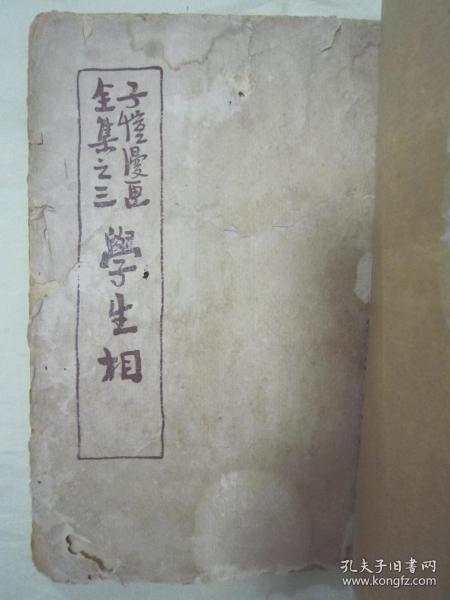 子愷漫画
全集之三
學生相
孔夫子旧书网
www.kongfz.com